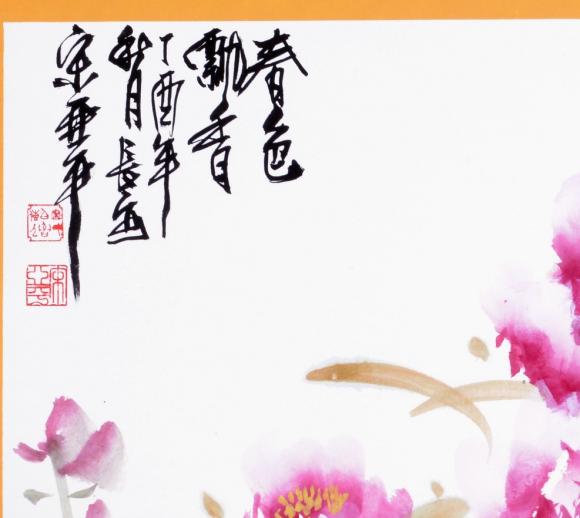 春色
飘香
丁酉年
秋月長画
宋亚平